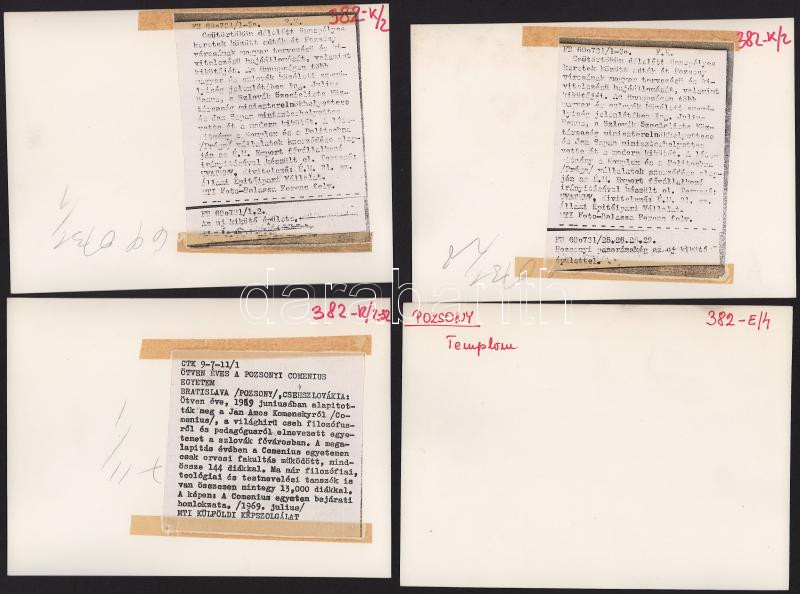 382-K/2
FD 69e731/1-2e. F.K.
Csütörtökön délelőtt ünnepélyes
keretek között adták át Pozsony
városának magyar tervezésű és ki-
vitelezésű hajóállomását, valamint
kikötőjét. Az ünnepségen több
magyar és szlovák közéleti szemé-
lyiség jelenlétében Ing. Julius
Hanus, a Szlovák Szocialista Köz-
társaság miniszterelnökhelyettese
és Jan miniszterhelyettes
vette át a modern kikötőt. A léte-
sítmény a Komplex és a Politechna
/Prága/ vállalatok szerződése alap-
ján az É.M. Export fővállalkozó
irányításával készült el. Tervező:
UVATERV, Kivitelező: É.M. 21. sz.
Állami Építőipari Vállalat.
MTI Foto-Balassa Ferenc felv.
FD 69e731/1.2.
Az uj kikötő épülete.
382-K/2
FD 69e731/1-2e. F.K.
Csütörtökön délelőtt ünnepélyes
keretek között adták át Pozsony
városának magyar tervezésű és ki-
vitelezésű hajóállomását, valamint
kikötőjét. Az ünnepségen több
magyar és szlovák közéleti szemé-
lyiség jelenlétében Ing. Julius
Hanus, a Szlovák Szocialista Köz-
társaság miniszterelnökhelyettese
és Jan miniszterhelyettes
vette át a modern kikötőt. A léte-
sítmény a Komplex és a Politechna
/Prága/ vállalatok szerződése alap-
ján az É.M. Export fővállalkozó
irányításával készült el. Tervező:
UVATERV, Kivitelező: É.M. 21. sz.
Állami Építőipari Vállalat.
MTI Foto-Balassa Ferenc felv.
FD 69e731/25.26.28.29.
Pozsonyi panorámakép az uj kikötő
épülettel.
382-K/2-32
CTK 9-7-11/1
ÖTVEN ÉVES A POZSONYI COMENIUS
EGYETEM
BRATISLAVA /POZSONY/,CSEHSZLOVÁKIA:
Ötven éve, 1919 juniusában alapitot-
ták meg a Jan Amos Komenskyről /Co-
menius/, a világhirü cseh filozófus-
ról és pedagógusról elnevezett egye-
temet a szlovák fővárosban. A mega-
lapitás évében a Comenius egyetemen
csak orvosi fakultás müködött, mind-
össze 144 diákkal. Ma már filozófiai,
teológiai és testnevelési tanszék is
van összesen mintegy 13,000 diákkal.
A képen: A Comenius egyetem bejárati
homlokzata. /1969. julius/
MTI KÜLFÖLDI KÉPSZOLGÁLAT
POZSONY
382-E/4
Templom
darabanth